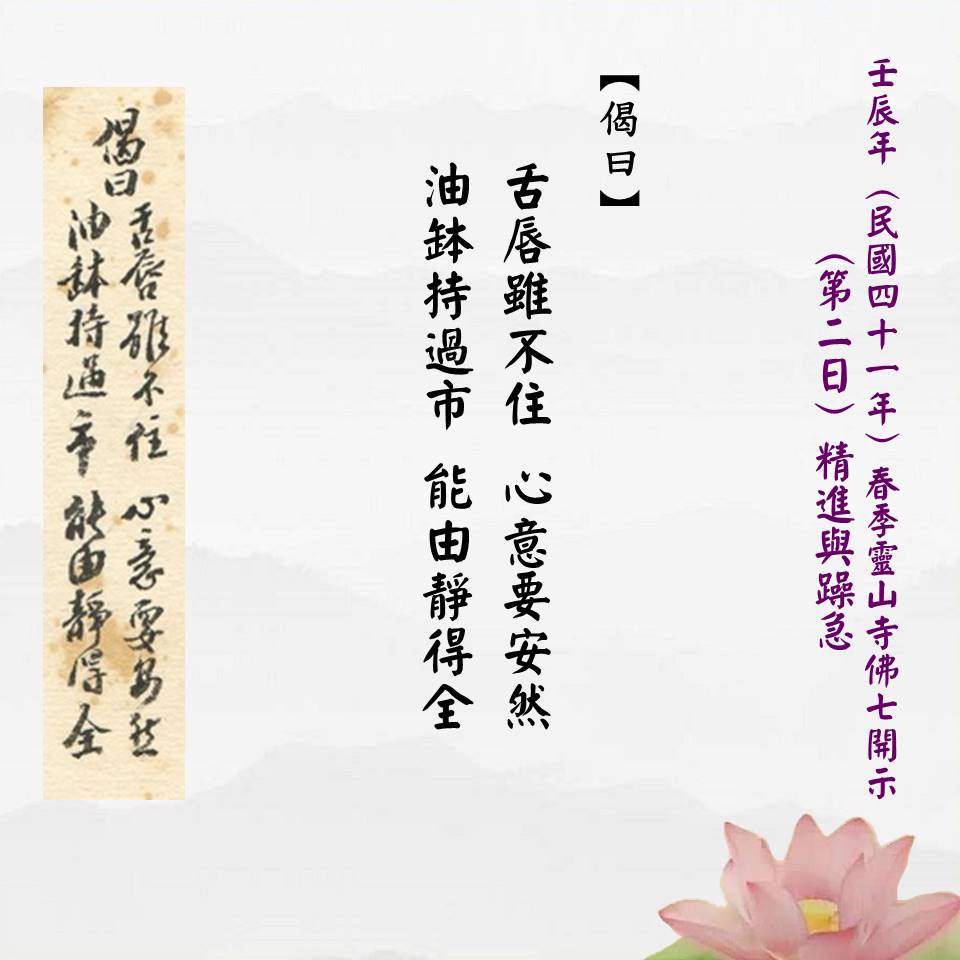 壬辰年（民國四十一年）春季靈山寺佛七開示
（第二日）精進與躁急
【偈曰】
舌唇雖不住 心意要安然
油缽持過市 能由靜得全
偈曰
舌唇雖不住 心意要安然
油缽持過市 能由靜得全